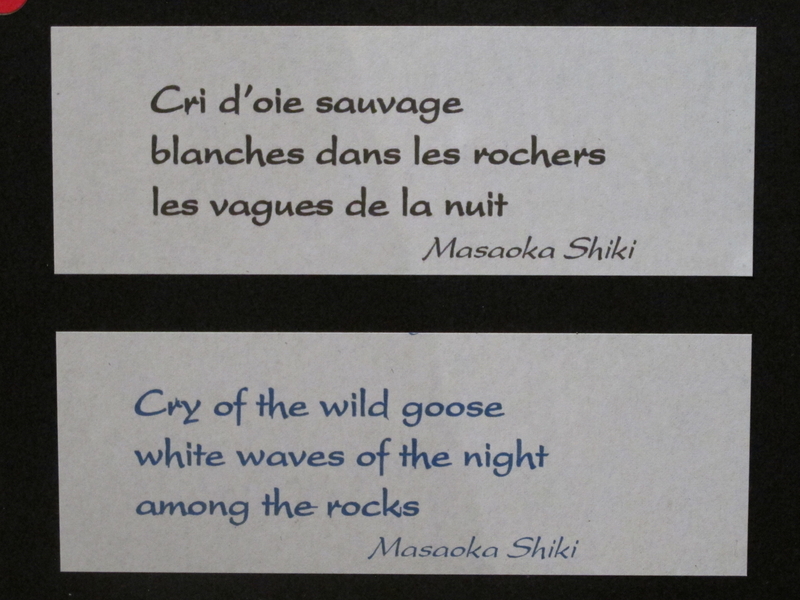 Cri d'oie sauvage
blanches dans les rochers
les vagues de la nuit
Masaoka Shiki
Cry of the wild goose
white waves of the night
among the rocks
Masaoka Shiki